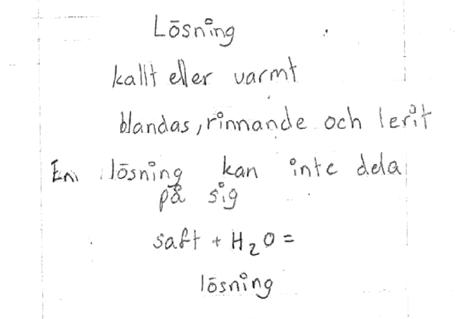 Lösning
kallt eller varmt
blandas, rinnande och lerit
En lösning kan inte dela
på sig
saft + H₂O =
lösning